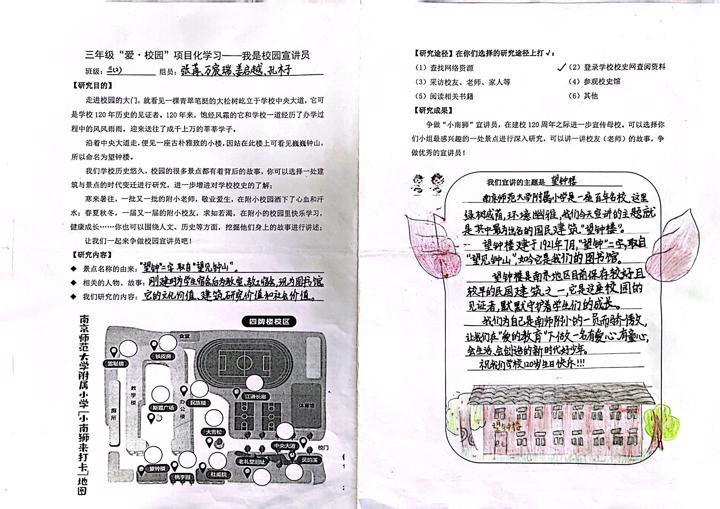 三年级“爱·校园”项目化学习——我是校园宣讲员
班级：三(2) 组员：张真、万宸瑞、姜启越、孔木子
【研究目的】
走进校园的大门，就看见一棵青翠笔挺的大松树屹立于学校中央大道，它可
是学校120年历史的见证者。120年来，饱经风霜的它和学校一道经历了办学
过程中的风风雨雨，迎来送往了成千上万的莘莘学子。
沿着中央大道走，便见一座古朴雅致的小楼，因站在此楼上可看见巍巍钟山，
所以命名为望钟楼。
我们学校历史悠久，校园的很多景点都有着背后的故事，你可以选择一处建
筑与景点的时代变迁进行研究，进一步增进对学校校史的了解；
寒来暑往，一批又一批的附小老师，敬业爱生，在附小校园洒下了心血和汗
水；春夏秋冬，一届又一届的附小校友，求知若渴，在附小的校园里快乐学习，
健康成长……你也可以围绕人文、历史等方面，挖掘他们身上的故事进行讲述；
让我们一起来争做校园宣讲员吧！
【研究内容】
◆ 景点名称的由来：“望钟”二字取自“望见钟山”。
◆ 相关的人物、故事：刚建时为学生宿舍后为教室、教工宿舍，现为图书馆
◆ 我们研究的内容：它的文化价值、建筑研究价值和社会价值。
四牌楼校区
南京师范大学附属小学「小南狮来打卡」地图
食堂
教学楼
厕所
办公楼
斯霞广场
民族楼
江涛长廊
体育馆
大雪松
中央大道
校门
爱钟楼
桃李园
杜威院
老礼堂旧址
【研究途径】在你们选择的研究途径上打√：
（1）查找网络资源 ✓（2）登录学校校史网查阅资料
（3）采访校友、老师、家人等 （4）参观校史馆
（5）阅读相关书籍 （6）其他
【研究成果】
争做“小南狮”宣讲员，在建校120周年之际进一步宣传母校，可以选择你
们小组最感兴趣的一处景点进行深入研究，可以讲一讲校友（老师）的故事，争
做优秀的宣讲员！
我们宣讲的主题是 望钟楼
南京师范大学附属小学是一座百年名校，这里
绿树成荫，环境幽雅，我们今天宣讲的主题就
是其中最为出名的国民建筑“望钟楼”。
望钟楼建于1921年7月，“望钟”二字取自
“望见钟山”，如今它是我们的图书馆。
望钟楼是南京地区目前保存较好且
较早的民国建筑之一，它是这座校园的
见证者，默默守护着学生们的成长。
我们为自己是南师附小的一员而骄傲，
让我们在“爱的教育”下做一名有爱心、有童心，
会生活、会创造的新时代好少年。
祝我们学校120岁生日快乐!!!
望钟楼